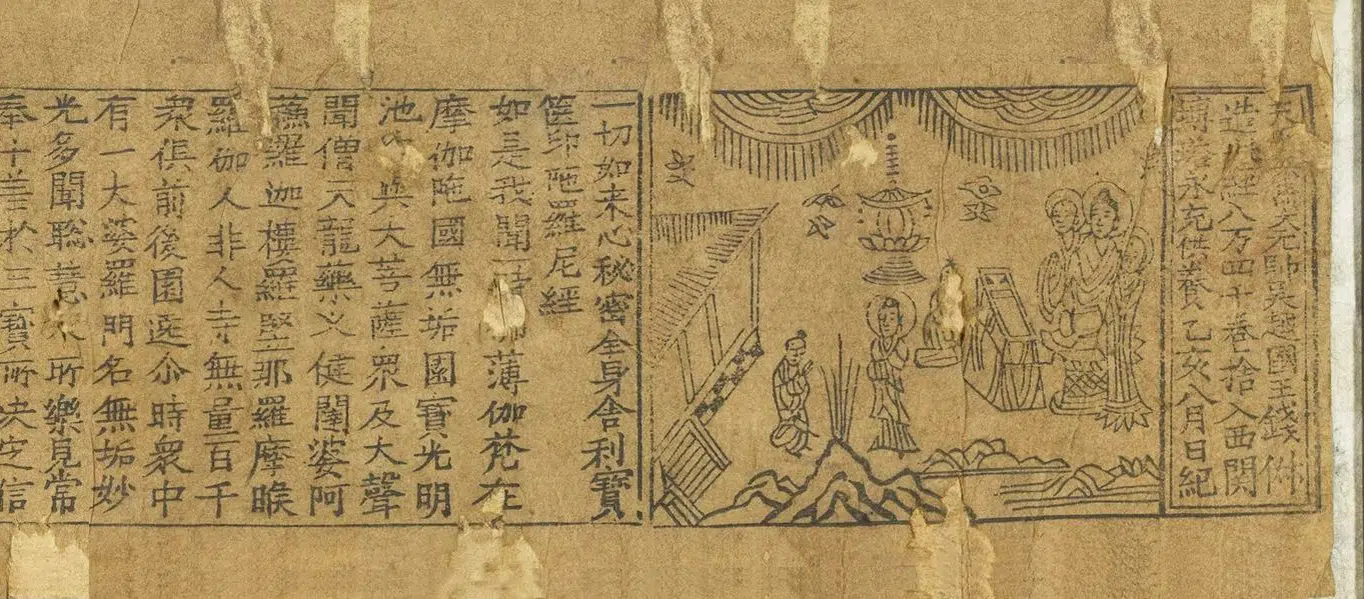 天下兵馬大元帥吳越國王錢俶
造此經八万四千卷捨入西関
塼塔永充供養乙亥八月日紀
一切如来心秘密全身舍利寶
篋印陁羅尼經
如是我聞一時薄伽梵在
摩伽陁國無垢園寶光明
池與大菩薩眾及大聲
聞僧天龍藥叉健闥婆阿
蘇羅迦樓羅緊那羅摩睺
羅伽人非人等無量百千
衆俱前後圍遶尒時衆中
有一大婆羅門名無垢妙
光多聞聡慧衆所樂見常
奉十善於三寶所決定信